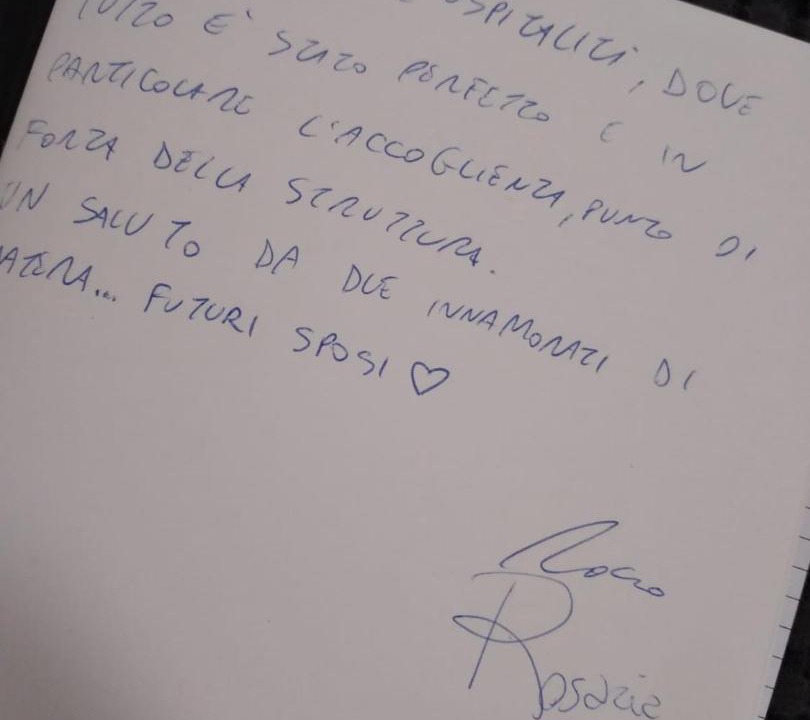 OSPITALITÀ, DOVE
TUTTO E' STATO PERFETTO E IN
PARTICOLARE L'ACCOGLIENZA, PUNTO DI
FORZA DELLA STRUTTURA.
UN SALUTO DA DUE INNAMORATI DI
MATERA... FUTURI SPOSI ♡
Rocco
Rosaria